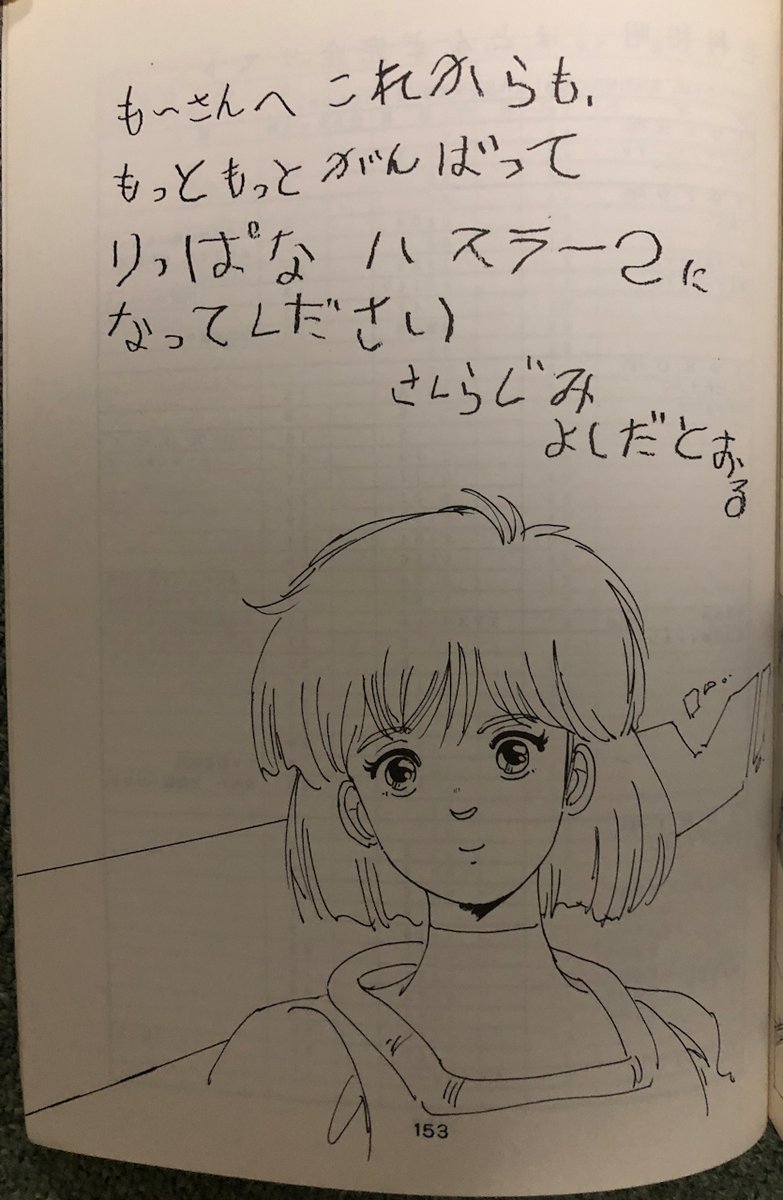 も〜さんへ これからも、
もっともっと がんばって
りっぱな ハスラー2に
なってください
さくらじみ
よしだとおる
ロ…
153